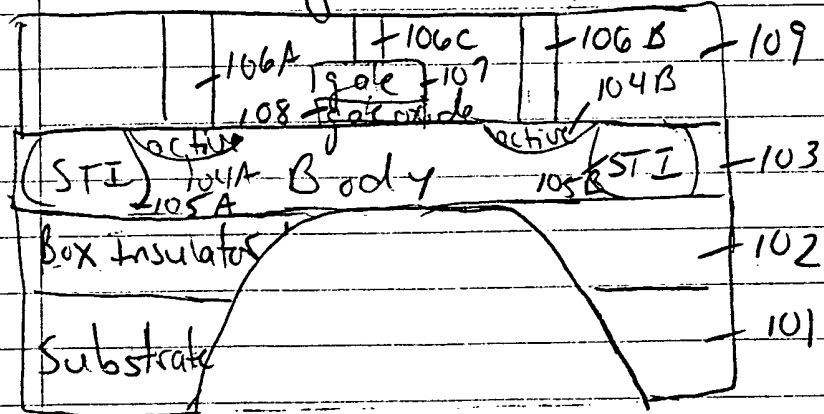 106A 106C 106B 109
gate 107 104B
108 gate oxide
active active
STI 104A Body 105B STI 103
105A
Box Insulator 102
Substrate 101